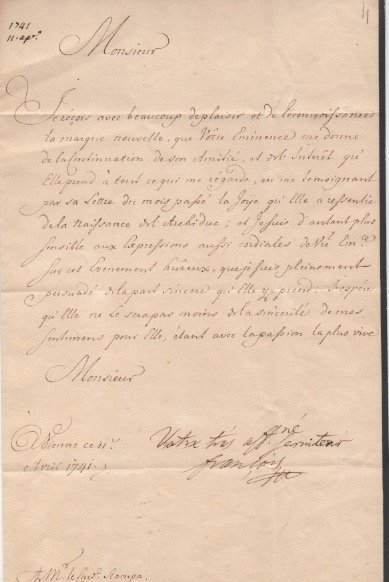 1741
11. apr.
Monsieur
Je reçois avec beaucoup de plaisir et de Reconnaissance
la marque nouvelle, que Vôtre Eminence me donne
de la Continuation de son Amitié, et de l'Interêt qu'
Elle prend à tout ce qui me regarde, en me temoignant
par sa Lettre du mois passé la Joye qu'Elle a ressentie
de la Naissance de l'Archiduc; et je suis d'autant plus
sensible aux Expressions aussi cordiales de Vre Em.
sur cet Evenement heureux, que je suis pleinement
persuadé de la part sincere qu'Elle y prend; j'espere
qu'Elle ne le sera pas moins de la sincérité de mes
sentimens pour Elle, étant avec la passion la plus vive
Monsieur
à Vienne ce 11.
Avril 1741.
Votre très affné serviteur
François
A Mr. le Card. Stampa.